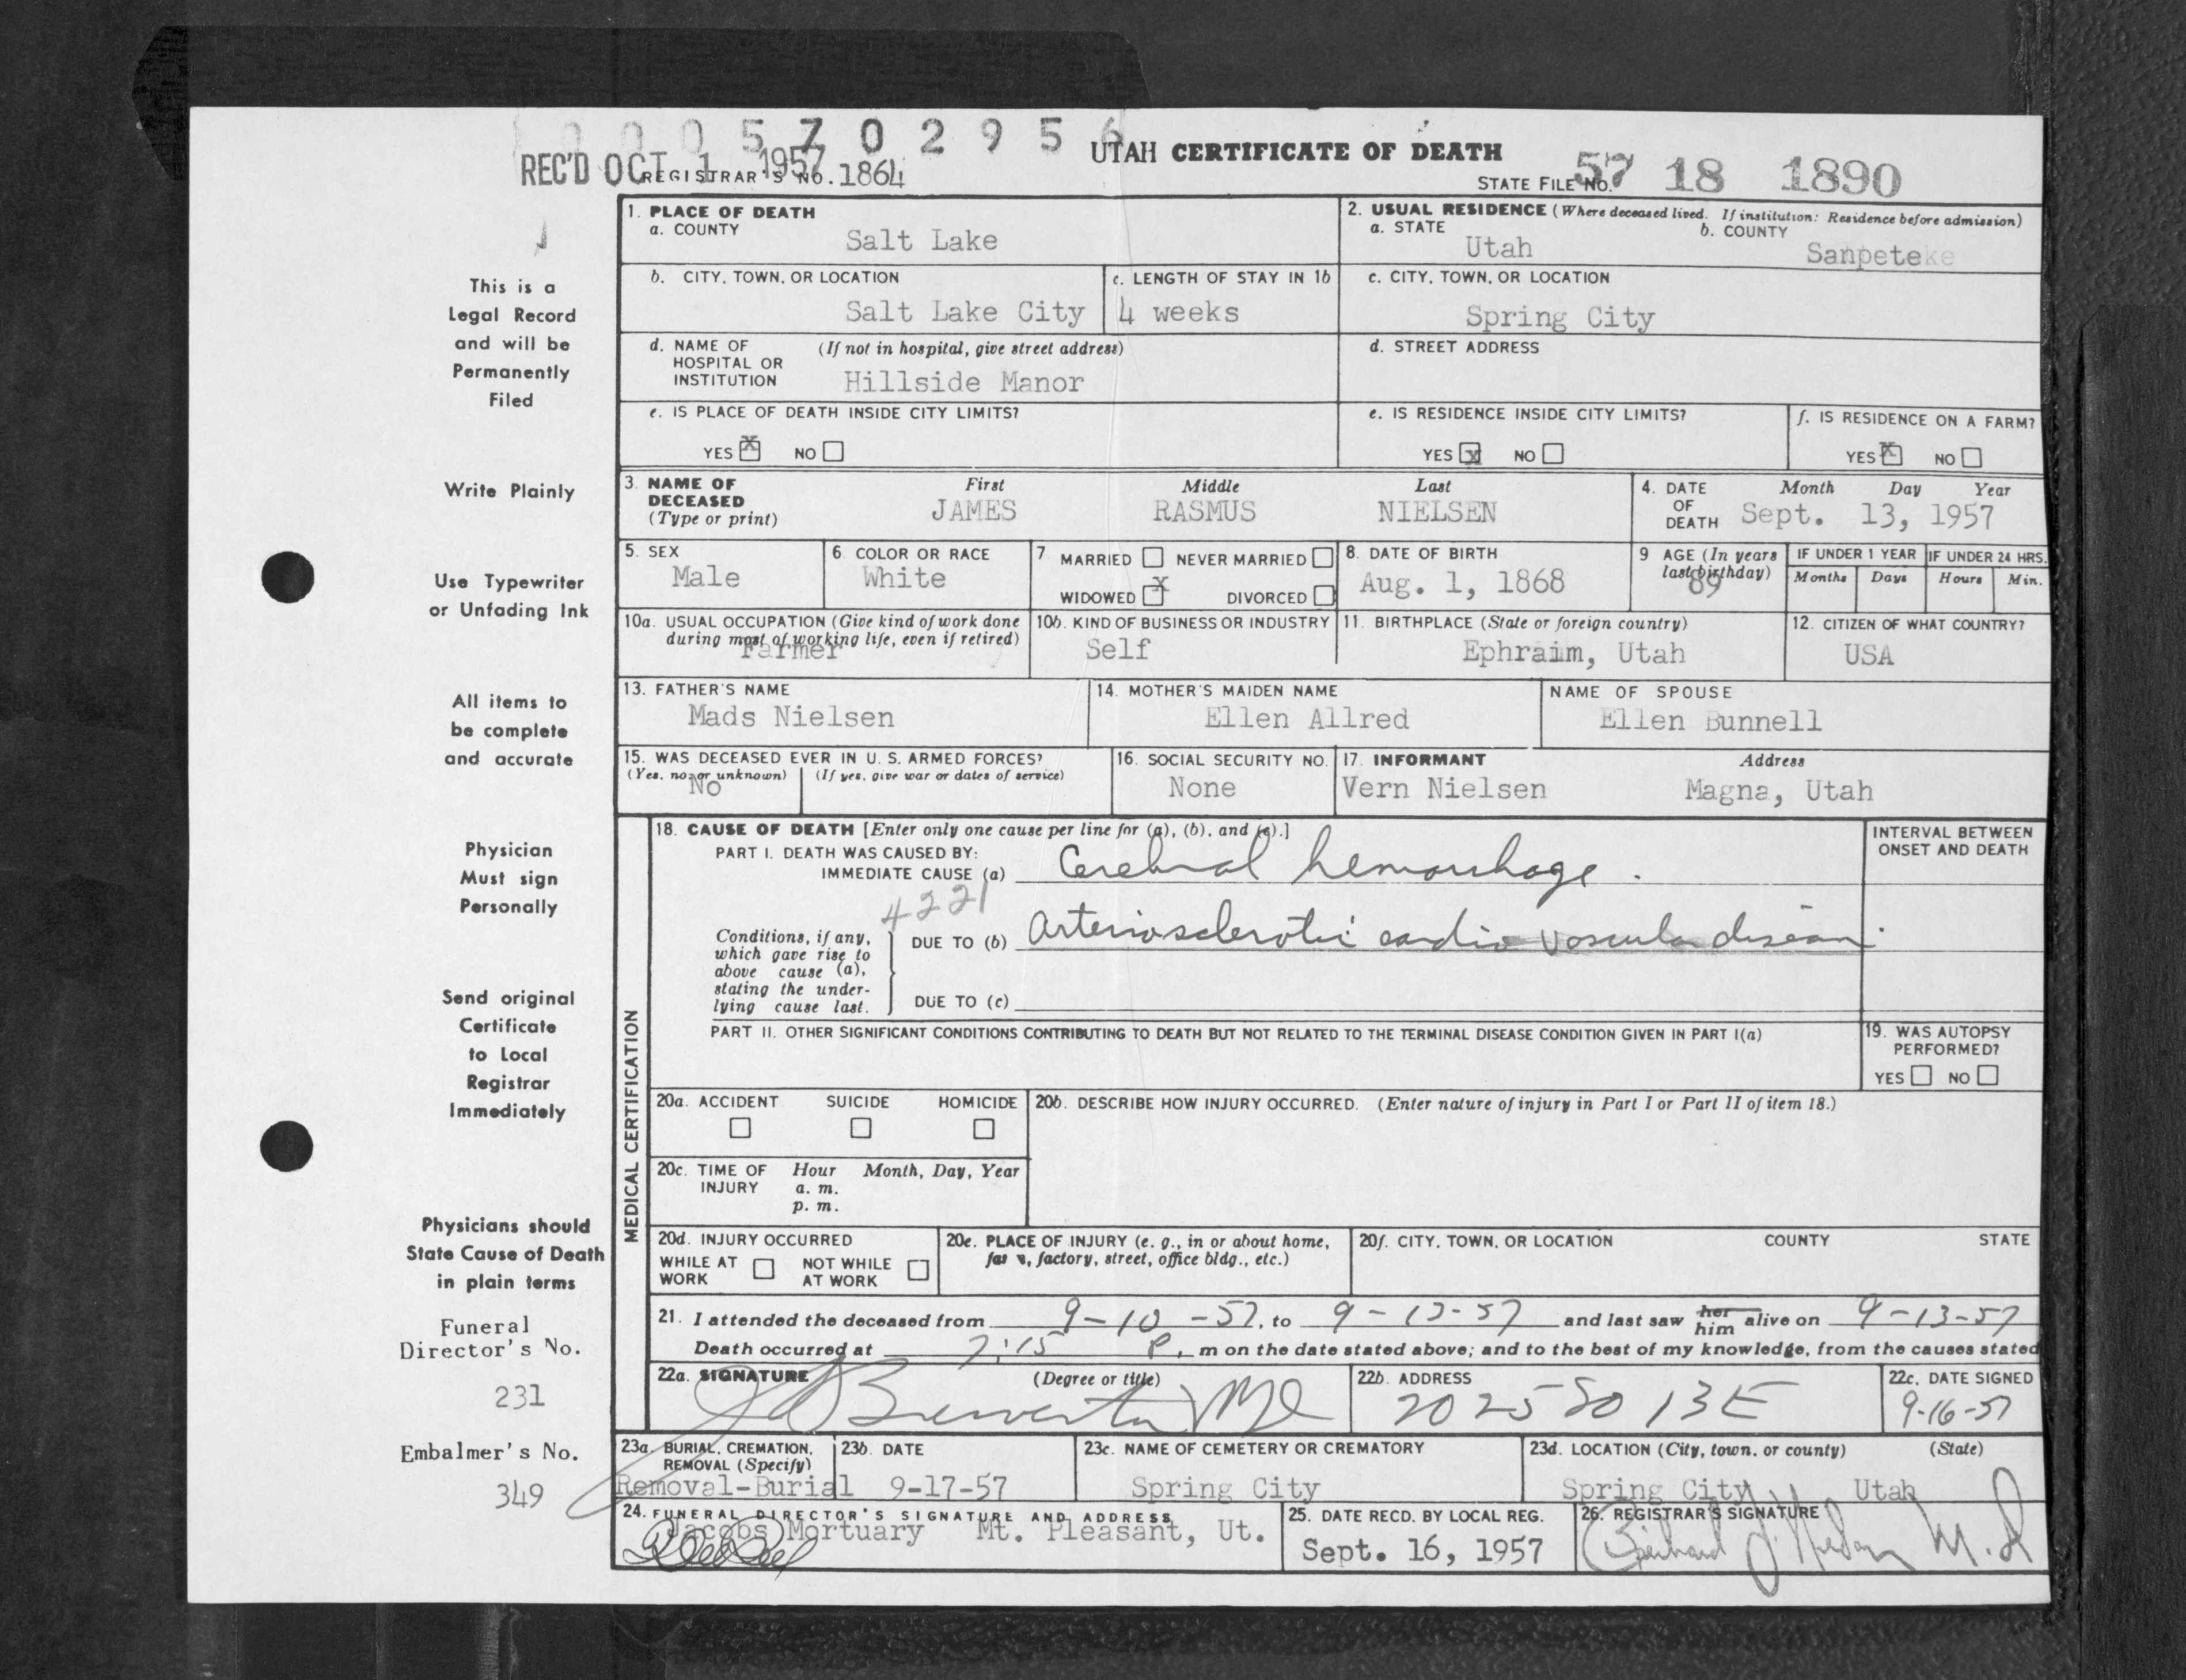 0 0 0 5 7 0 2 9 5 6
UTAH CERTIFICATE OF DEATH
REC'D OCT 1 1957
REGISTRAR'S NO. 1864
STATE FILE NO. 57 18 1890
This is a
Legal Record
and will be
Permanently
Filed
Write Plainly
Use Typewriter
or Unfading Ink
All items to
be complete
and accurate
Physician
Must sign
Personally
Send original
Certificate
to Local
Registrar
Immediately
Physicians should
State Cause of Death
in plain terms
Funeral
Director's No.
231
Embalmer's No.
349
1. PLACE OF DEATH
a. COUNTY
Salt Lake
2. USUAL RESIDENCE (Where deceased lived. If institution: Residence before admission)
a. STATE
Utah
b. COUNTY
Sanpete
b. CITY, TOWN, OR LOCATION
Salt Lake City
c. LENGTH OF STAY IN 1b
4 weeks
c. CITY, TOWN, OR LOCATION
Spring City
d. NAME OF (If not in hospital, give street address)
HOSPITAL OR
INSTITUTION
Hillside Manor
d. STREET ADDRESS
e. IS PLACE OF DEATH INSIDE CITY LIMITS?
YES X NO
e. IS RESIDENCE INSIDE CITY LIMITS?
YES X NO
f. IS RESIDENCE ON A FARM?
YES X NO
3. NAME OF
DECEASED
(Type or print)
First Middle Last
JAMES RASMUS NIELSEN
4. DATE
OF
DEATH
Month Day Year
Sept. 13, 1957
5. SEX
Male
6 COLOR OR RACE
White
7 MARRIED NEVER MARRIED
WIDOWED X DIVORCED
8. DATE OF BIRTH
Aug. 1, 1868
9 AGE (In years
last birthday)
89
IF UNDER 1 YEAR
Months Days
IF UNDER 24 HRS.
Hours Min.
10a. USUAL OCCUPATION (Give kind of work done
during most of working life, even if retired)
Farmer
10b. KIND OF BUSINESS OR INDUSTRY
Self
11. BIRTHPLACE (State or foreign country)
Ephraim, Utah
12. CITIZEN OF WHAT COUNTRY?
USA
13. FATHER'S NAME
Mads Nielsen
14. MOTHER'S MAIDEN NAME
Ellen Allred
NAME OF SPOUSE
Ellen Bunnell
15. WAS DECEASED EVER IN U. S. ARMED FORCES?
(Yes, no, or unknown) (If yes, give war or dates of service)
No
16. SOCIAL SECURITY NO.
None
17. INFORMANT Address
Vern Nielsen Magna, Utah
MEDICAL CERTIFICATION
18. CAUSE OF DEATH [Enter only one cause per line for (a), (b), and (c).]
PART I. DEATH WAS CAUSED BY:
IMMEDIATE CAUSE (a) Cerebral hemorrhage.
INTERVAL BETWEEN
ONSET AND DEATH
4221
Conditions, if any,
which gave rise to
above cause (a),
stating the under-
lying cause last.
DUE TO (b) Arteriosclerotic cardio vascular disease.
DUE TO (c)
PART II. OTHER SIGNIFICANT CONDITIONS CONTRIBUTING TO DEATH BUT NOT RELATED TO THE TERMINAL DISEASE CONDITION GIVEN IN PART I(a)
19. WAS AUTOPSY
PERFORMED?
YES NO
20a. ACCIDENT SUICIDE HOMICIDE
20b. DESCRIBE HOW INJURY OCCURRED. (Enter nature of injury in Part I or Part II of item 18.)
20c. TIME OF
INJURY
Hour Month, Day, Year
a. m.
p. m.
20d. INJURY OCCURRED
WHILE AT
WORK
NOT WHILE
AT WORK
20e. PLACE OF INJURY (e. g., in or about home,
farm, factory, street, office bldg., etc.)
20f. CITY, TOWN, OR LOCATION COUNTY STATE
21. I attended the deceased from 9-10-57, to 9-13-57 and last saw her him alive on 9-13-57
Death occurred at 7:15 P. m on the date stated above; and to the best of my knowledge, from the causes stated
22a. SIGNATURE (Degree or title)
MD
22b. ADDRESS
2025 So 13 E
22c. DATE SIGNED
9-16-57
23a. BURIAL, CREMATION,
REMOVAL (Specify)
Removal-Burial
23b. DATE
9-17-57
23c. NAME OF CEMETERY OR CREMATORY
Spring City
23d. LOCATION (City, town, or county) (State)
Spring City Utah
24. FUNERAL DIRECTOR'S SIGNATURE AND ADDRESS
Jacobs Mortuary Mt. Pleasant, Ut.
25. DATE RECD. BY LOCAL REG.
Sept. 16, 1957
26. REGISTRAR'S SIGNATURE
M.D